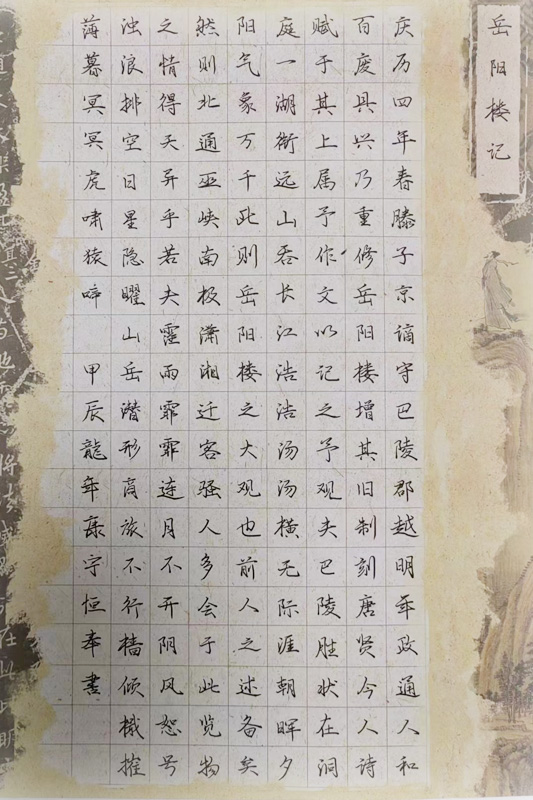 岳阳楼记
庆历四年春滕子京谪守巴陵郡越明年政通人和
百废具兴乃重修岳阳楼增其旧制刻唐贤今人诗
赋于其上属予作文以记之予观夫巴陵胜状在洞
庭一湖衔远山吞长江浩浩汤汤横无际涯朝晖夕
阳气象万千此则岳阳楼之大观也前人之述备矣
然则北通巫峡南极潇湘迁客骚人多会于此览物
之情得无异乎若夫霪雨霏霏连月不开阴风怒号
浊浪排空日星隐曜山岳潜形商旅不行樯倾楫摧
薄暮冥冥虎啸猿啼 甲辰龍年康宇恒奉書